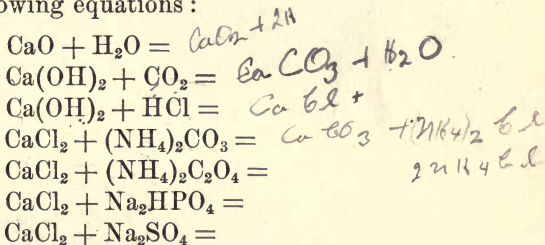 lowing equations:
CaO + H₂O = CaO₂ + 2H
Ca(OH)₂ + CO₂ = Ca CO₃ + H₂O
Ca(OH)₂ + HCl = Ca Cl +
CaCl₂ + (NH₄)₂CO₃ = Ca CO₃ + (NH4)₂ Cl
2 NH4 Cl
CaCl₂ + (NH₄)₂C₂O₄ =
CaCl₂ + Na₂HPO₄ =
CaCl₂ + Na₂SO₄ =